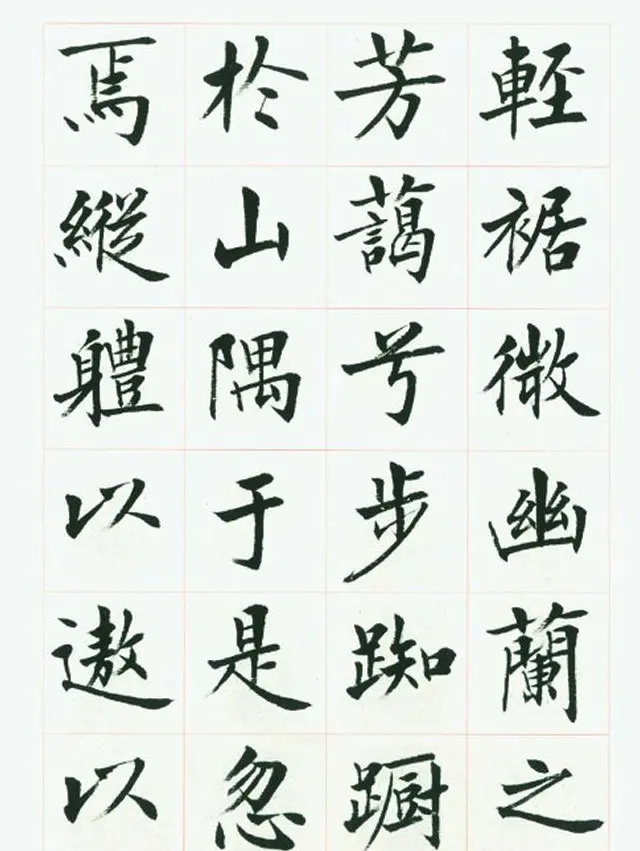 輕裾微幽蘭之
芳藹兮步踟蹰
於山隅于是忽
焉縱軆以遨以